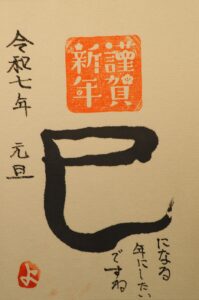 謹賀
新年
巳
になる
年にしたい
ですね
令和七年 元旦
よ